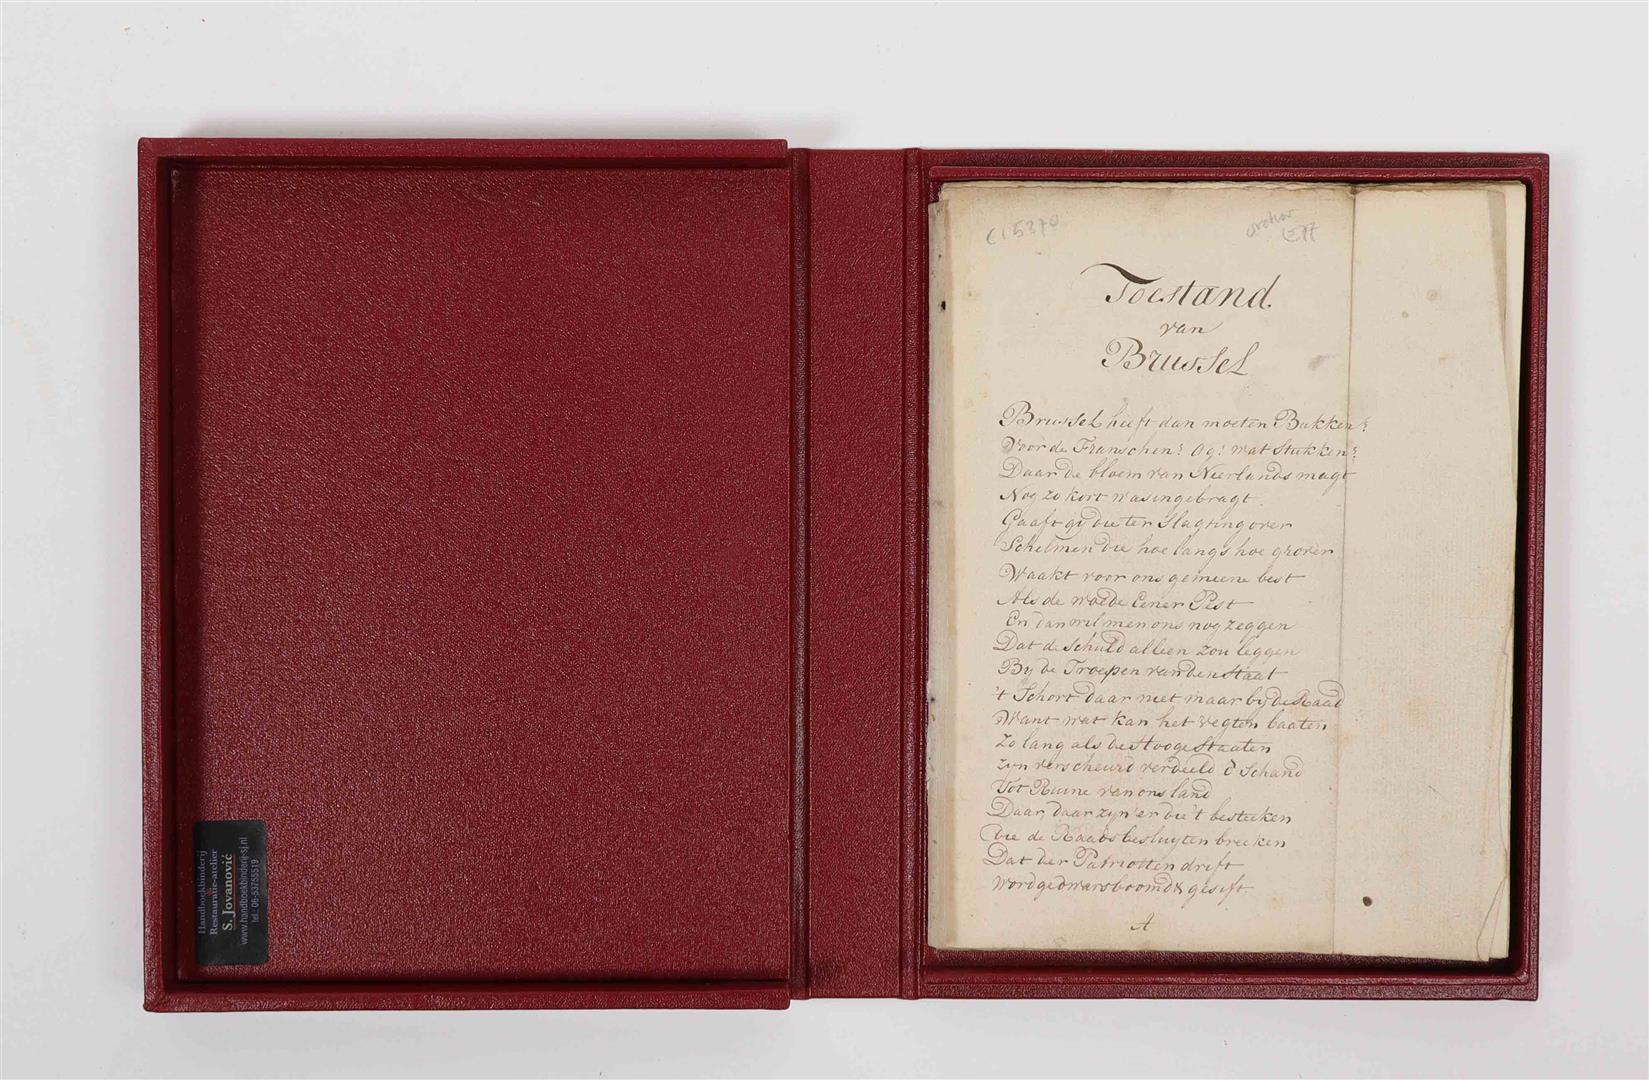 Handboekbinderij
Restauratie-atelier
S. Jovanović
www.handboekbinderij-sj.nl
tel.: 06-53755519
C15370
Toestand
van
Brussel
Brussel heeft dan moeten Bukken?
Voor de Franschen? Ag! wat Stukken?
Daar de bloem van Nierlands magt
Nog zo kort was ingebragt.
Gaaft gy die ter Slagting over
Schelmen die hoe langs hoe grover
Waakt voor ons gemeene best
Als de wolde Eener Pest
En dan wil men ons nog zeggen
Dat de Schuld alleen zou leggen
By de Troepen van den Staat
't Schort daar niet maar by de Raad
Want wat kan het vegten baaten
Zo lang als de Hooge Staaten
zyn verscheurd verdeeld ô Schand
Tot Ruine van ons land
Daar, daar zyn er die 't besteeken
die de Raadsbesluyten breeken
Dat der Patriotten drift
word gedwarsboomd & gesift
A